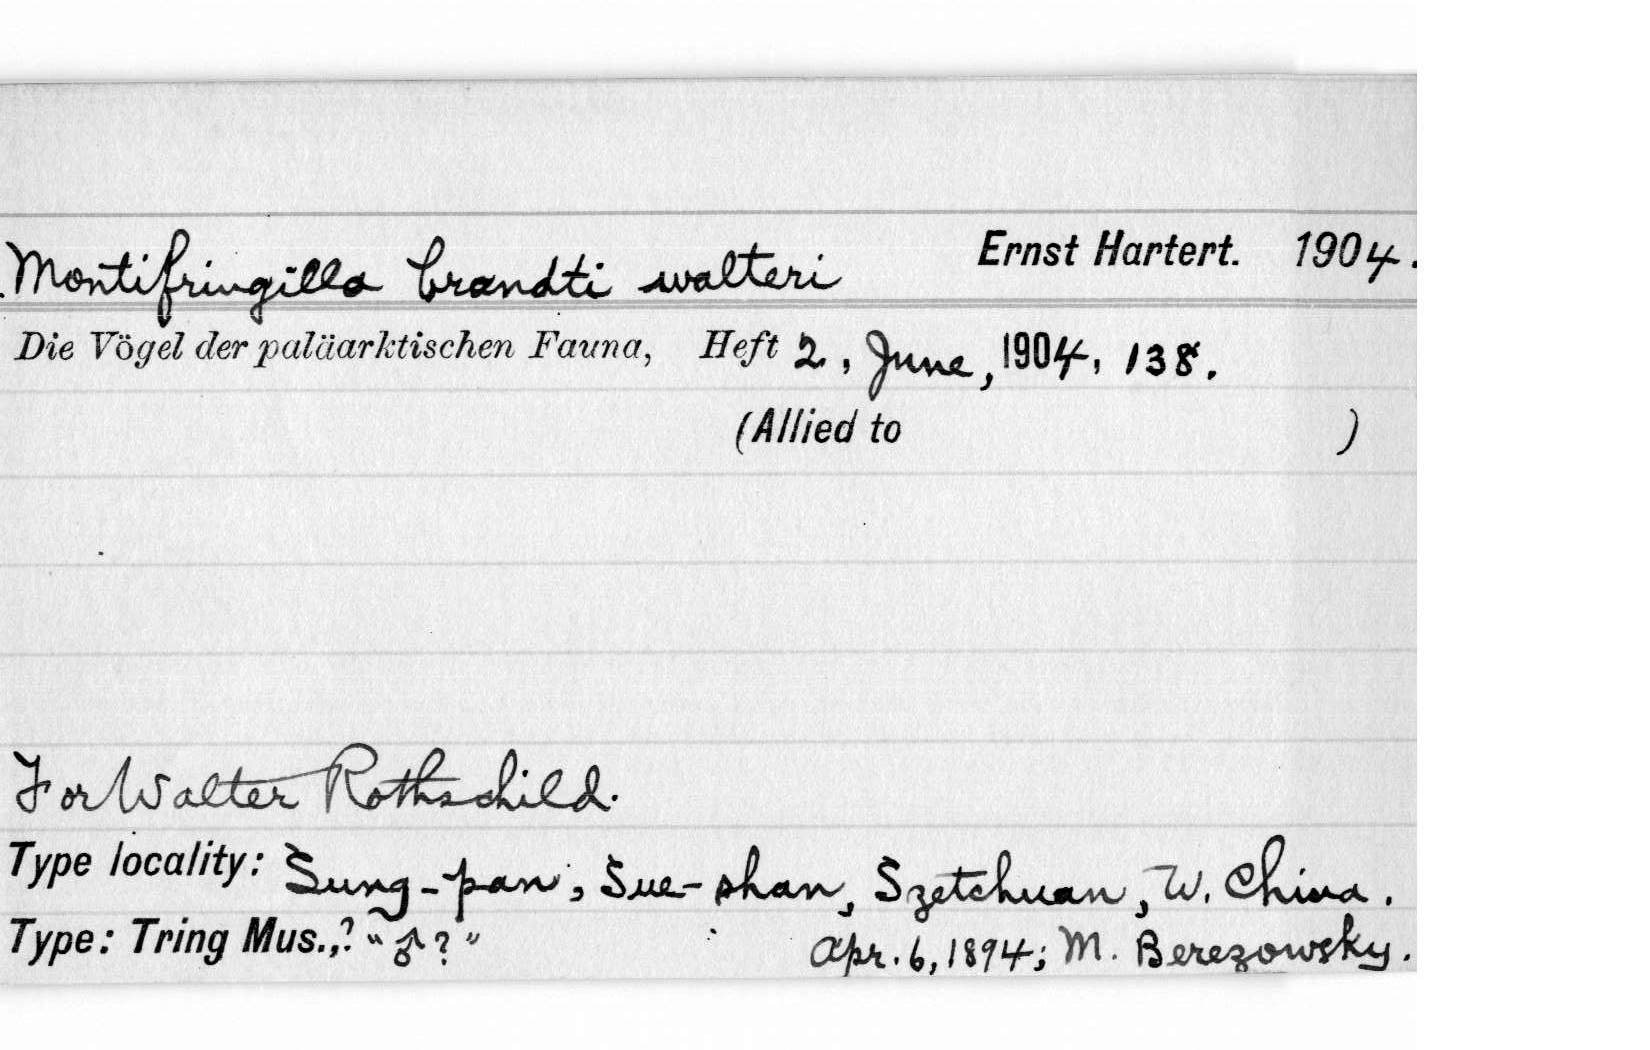 Montifringilla brandti walteri Ernst Hartert. 1904.
Die Vögel der paläarktischen Fauna, Heft 2, June, 1904, 138.
(Allied to )
For Walter Rothschild.
Type locality: Sung-pan, Sue-shan, Szetchuan, W. China.
Type: Tring Mus.,? "♂?" Apr. 6, 1894; M. Berezowsky.